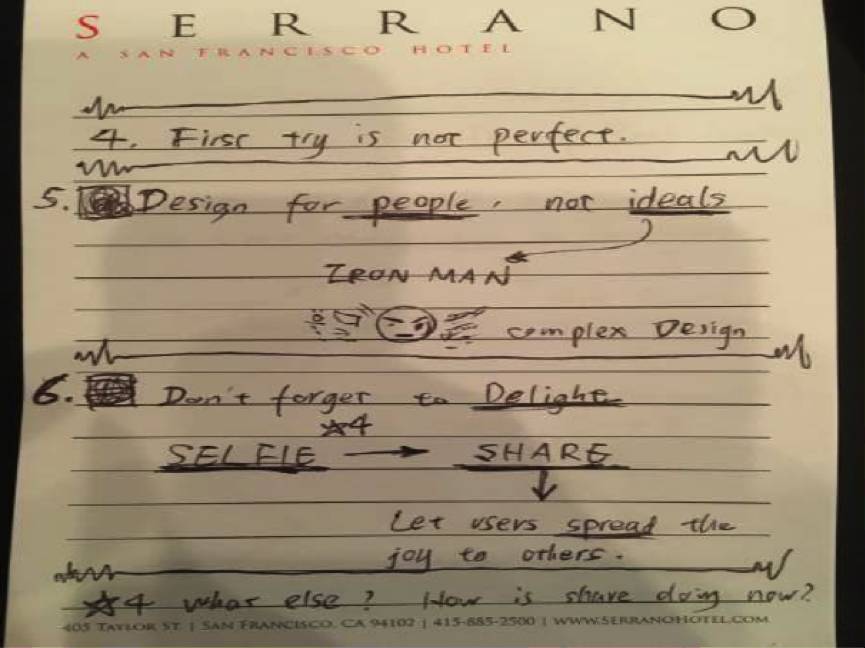 SERRANO
A SAN FRANCISCO HOTEL
4. First try is not perfect.
5. Design for people, not ideals
IRON MAN
complex Design
6. Don't forget to Delight
☆4
SELFIE → SHARE
↓
Let users spread the
joy to others.
☆4 what else? How is share doing now?
405 TAYLOR ST | SAN FRANCISCO, CA 94102 | 415-885-2500 | WWW.SERRANOHOTEL.COM